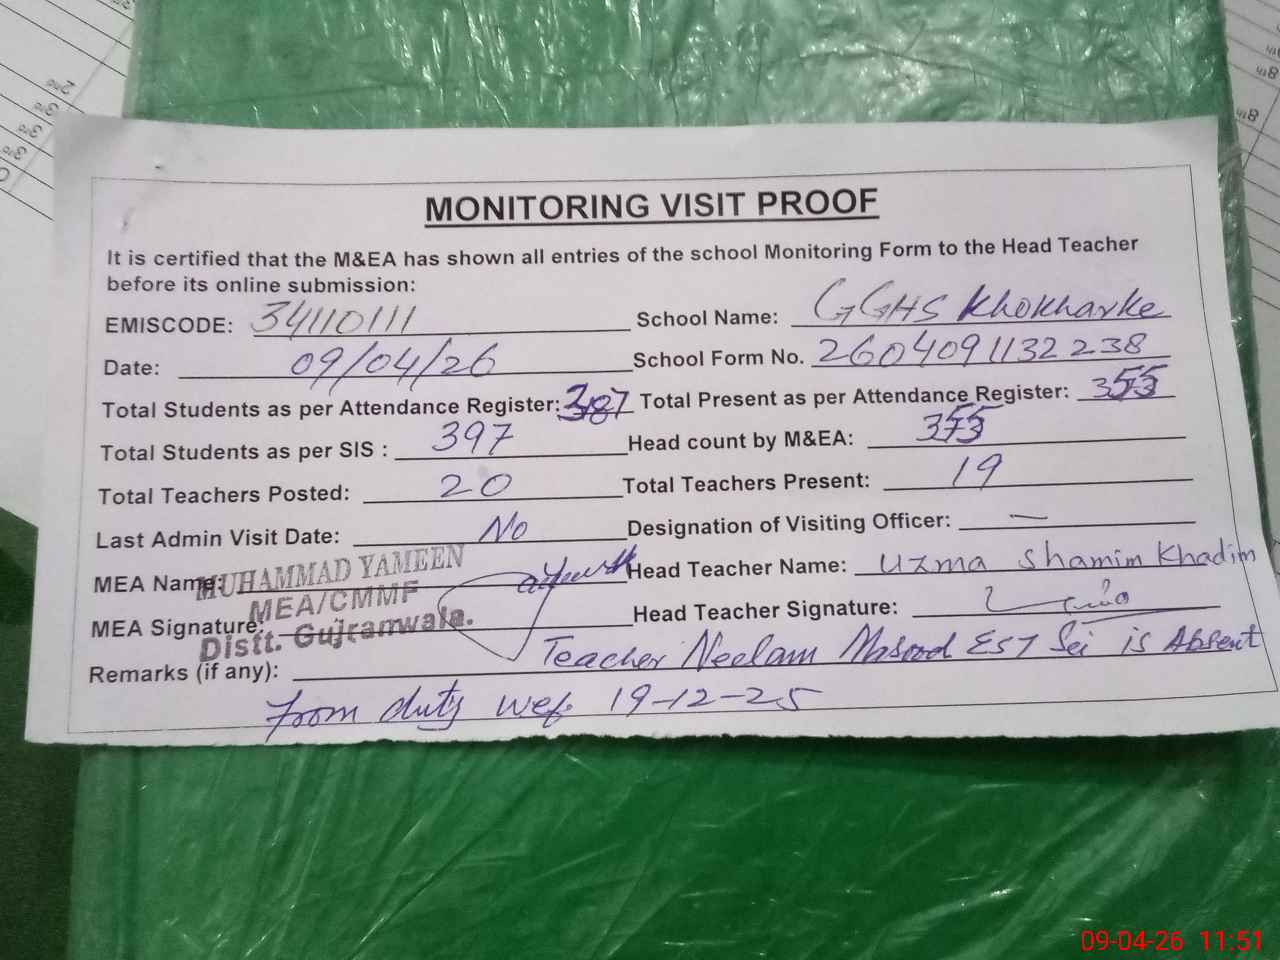 MONITORING VISIT PROOF
It is certified that the M&EA has shown all entries of the school Monitoring Form to the Head Teacher
before its online submission:
EMISCODE: 34110111 School Name: GGHS Khokharke
Date: 09/04/26 School Form No. 2604091132238
Total Students as per Attendance Register: 387 Total Present as per Attendance Register: 355
Total Students as per SIS : 397 Head count by M&EA: 355
Total Teachers Posted: 20 Total Teachers Present: 19
Last Admin Visit Date: No Designation of Visiting Officer: —
MEA Name: MUHAMMAD YAMEEN Head Teacher Name: Uzma Shamim Khadim
MEA/CMMF
MEA Signature: Head Teacher Signature:
Distt. Gujranwala.
Remarks (if any): Teacher Neelam Masood EST Sci is Absent
from duty wef. 19-12-25
09-04-26 11:51
2nd
3rd
3rd
3rd
8th
8th